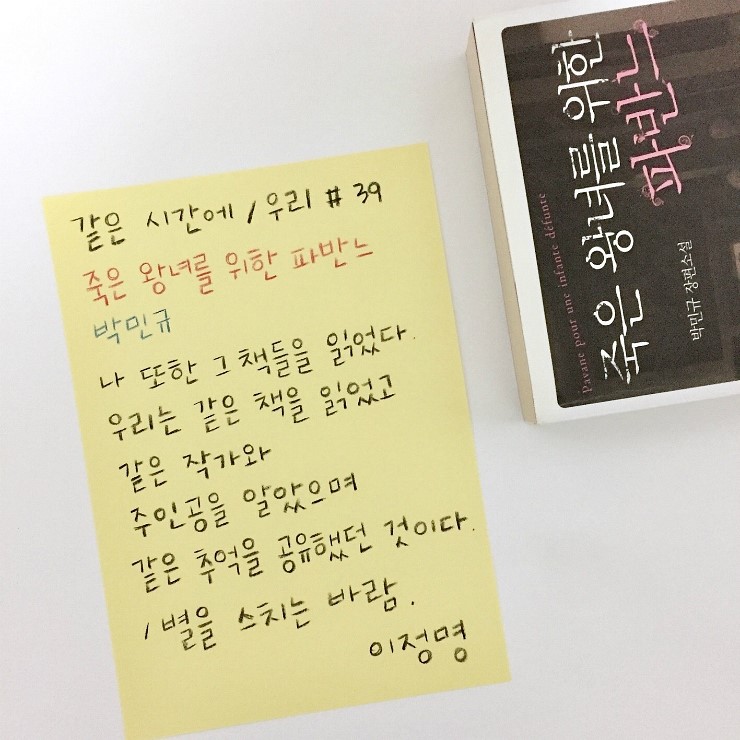 같은 시간에 / 우리 # 39
죽은 왕녀를 위한 파반느
박민규
나 또한 그 책들을 읽었다.
우리는 같은 책을 읽었고
같은 작가와
주인공을 알았으며
같은 추억을 공유했던 것이다.
/ 별을 스치는 바람.
이정명
죽은 왕녀를 위한
파반느
Pavane pour une infante défunte
박민규 장편소설